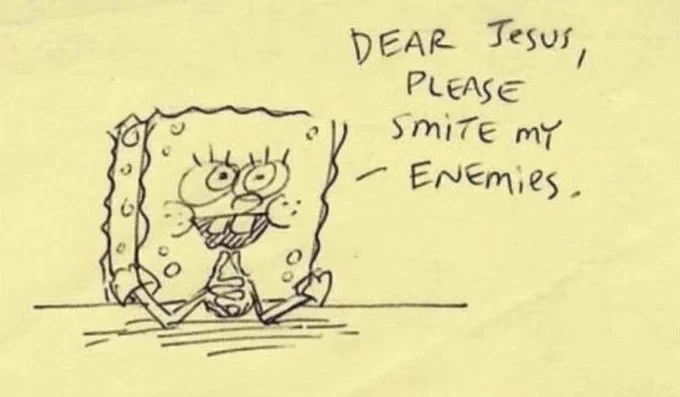 DEAR JESUS,
PLEASE
SMITE MY
ENEMIES.